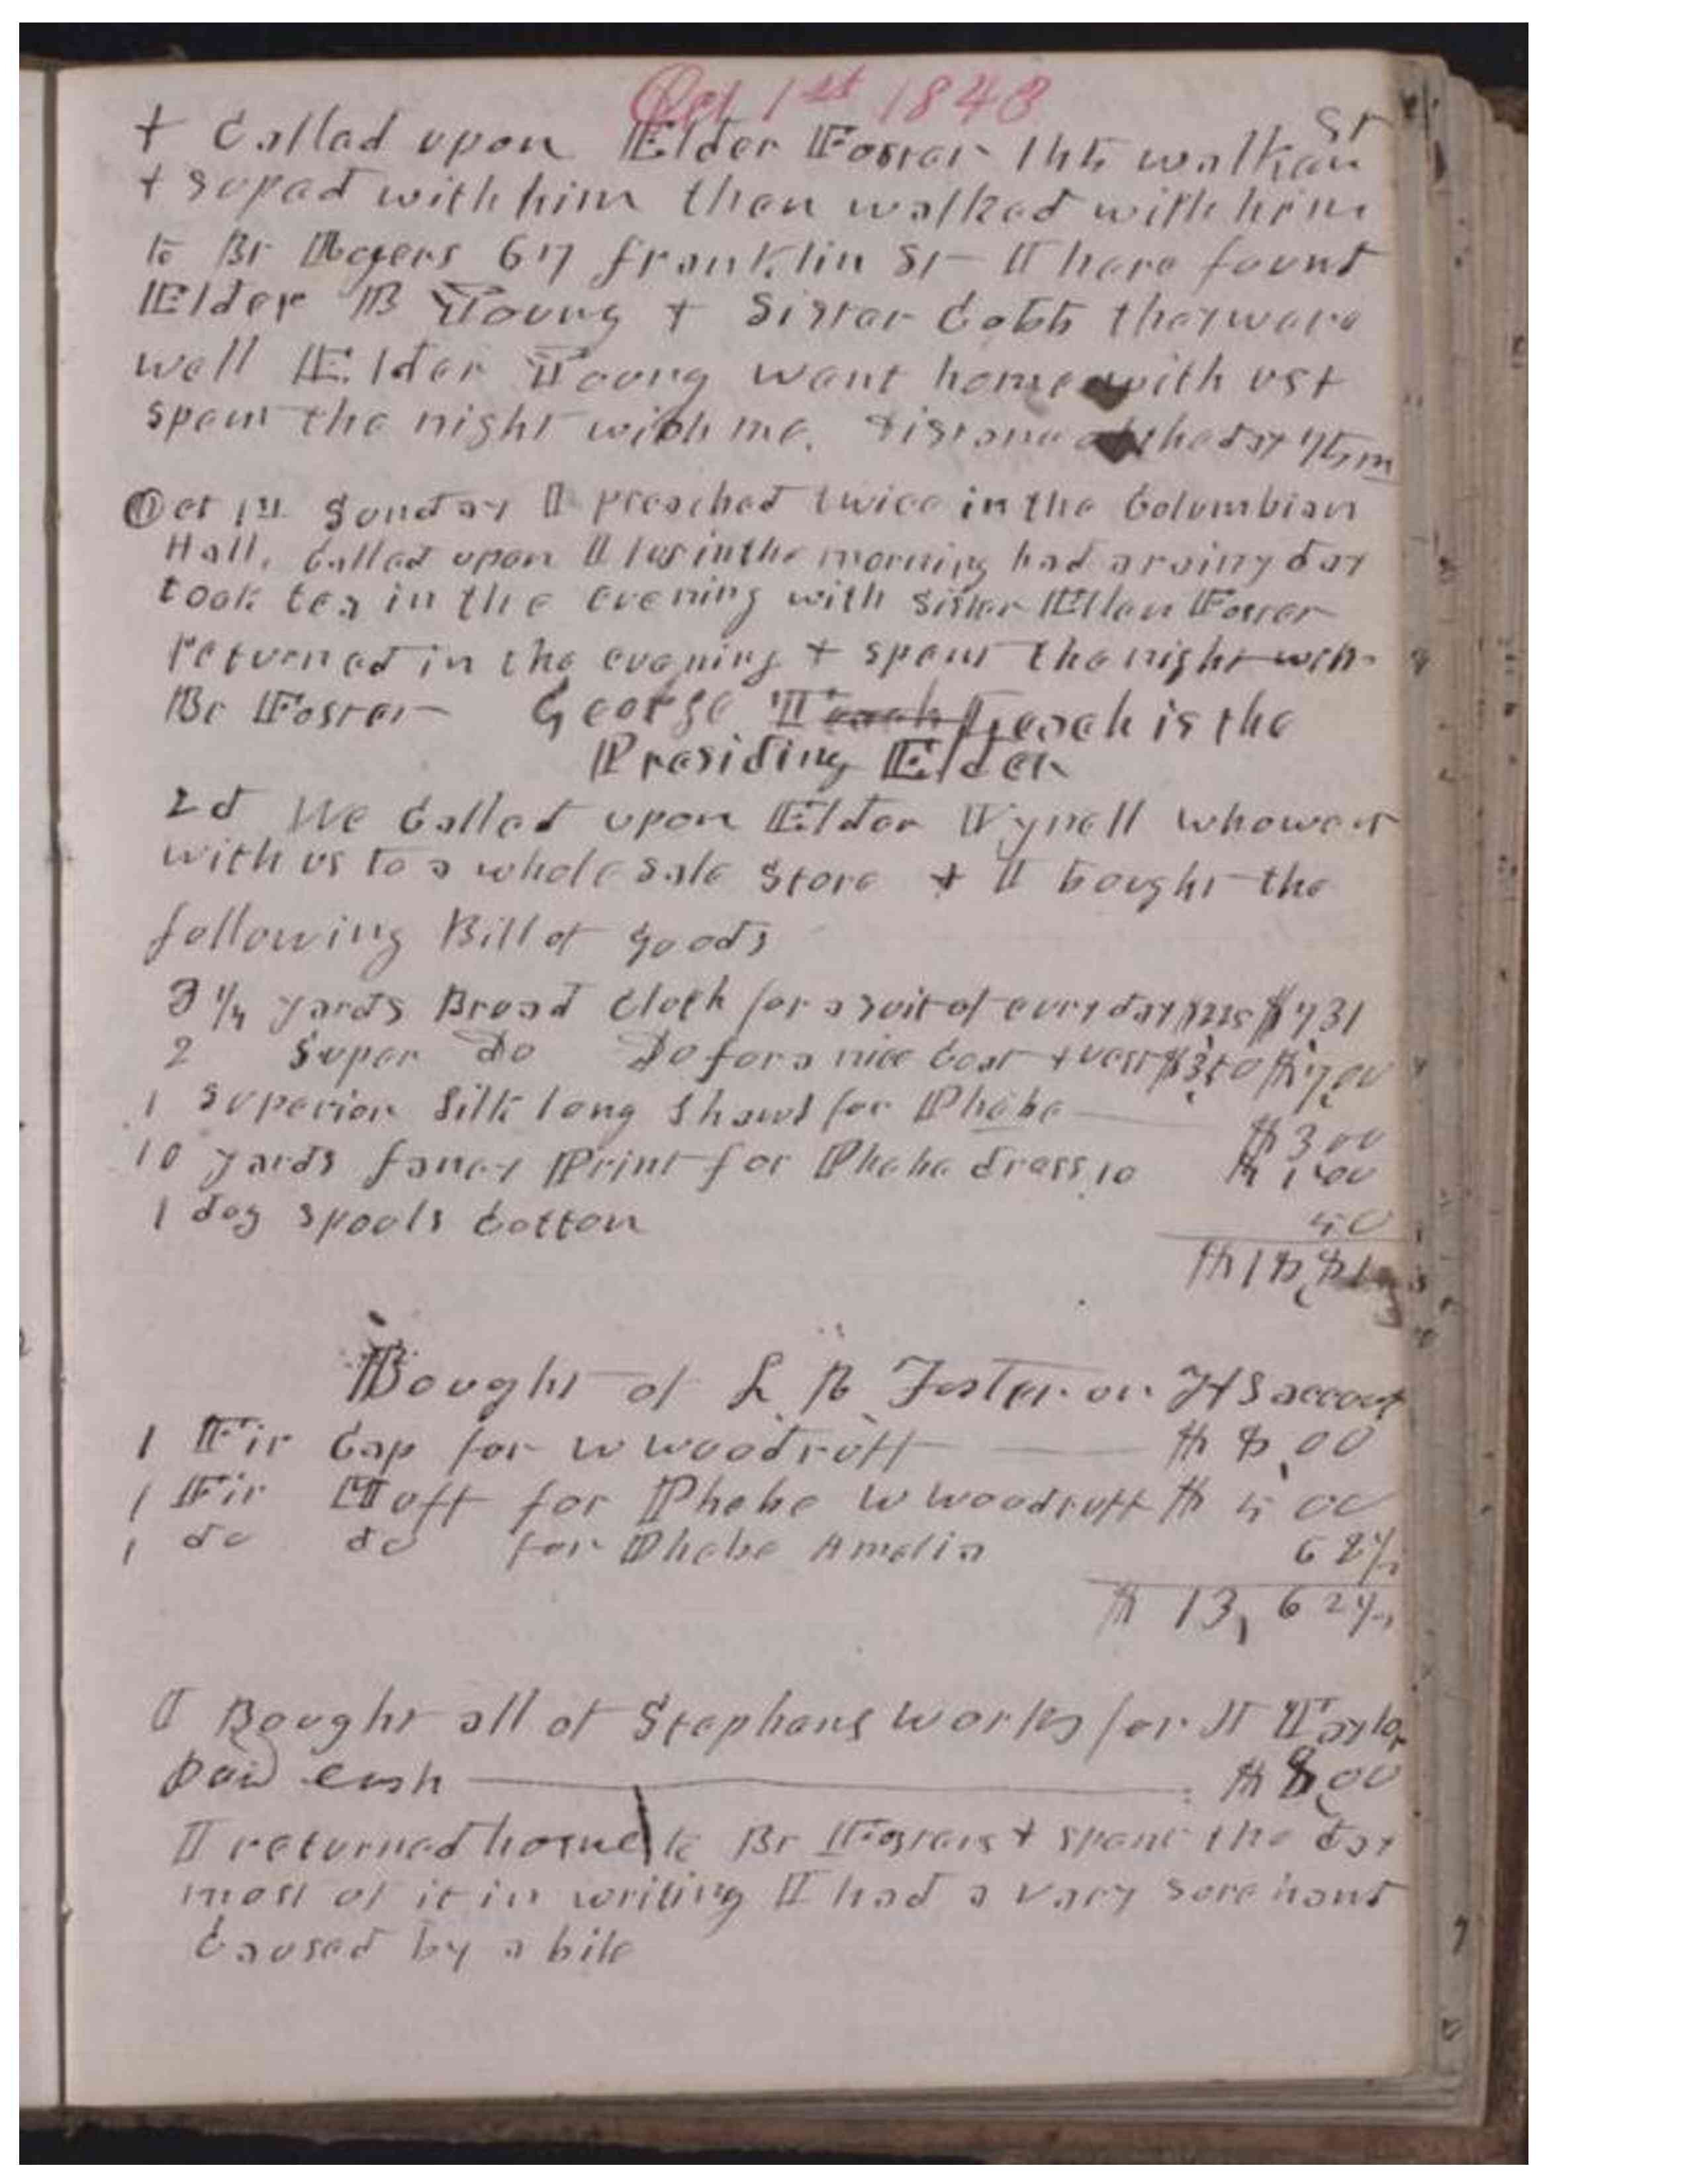 Oct 1st 1843
+ Called upon Elder Foster 145 walker St
+ suped with him then walked with him
to Br Rogers 67 franklin St I here found
Elder B Young + Sister Cobb they ware
well Elder Young went home with us +
spent the night with me. Distance of the day 75 m
Oct 1st Sunday I preached twice in the Columbian
Hall, Called upon Ilus in the morning had a rainy day
took tea in the evening with Sister Ellen Foster
returned in the evening + spent the night with
Br Foster George T Leach is the
Presiding Elder
2d We Called upon Elder Wynell who went
with us to a whole sale Store + I bought the
following Bill of goods
3 1/4 yards Broad Cloth for a suit of every day $2.25 $7,31
2 Super Do Do for a nice Coat + vest $3,50 $7,00
1 Superior Silk long Shawl for Phebe $3 00
10 yards fancy Print for Phebe dress ,10 $1 00
1 doz spools Cotton 50
$18,81
Bought of L R Foster on JS account
1 Fir Cap for W Woodruff $8,00
1 Fir Muff for Phebe W Woodruff $5 00
1 do do for Phebe Amelia 62 1/2
$13,62 1/2
I Bought all of Stephens Works for J Taylor
Paid Cash $8,00
I returned home to Br Fosters + spent the day
most of it in writing I had a vary sore hand
Caused by a bile